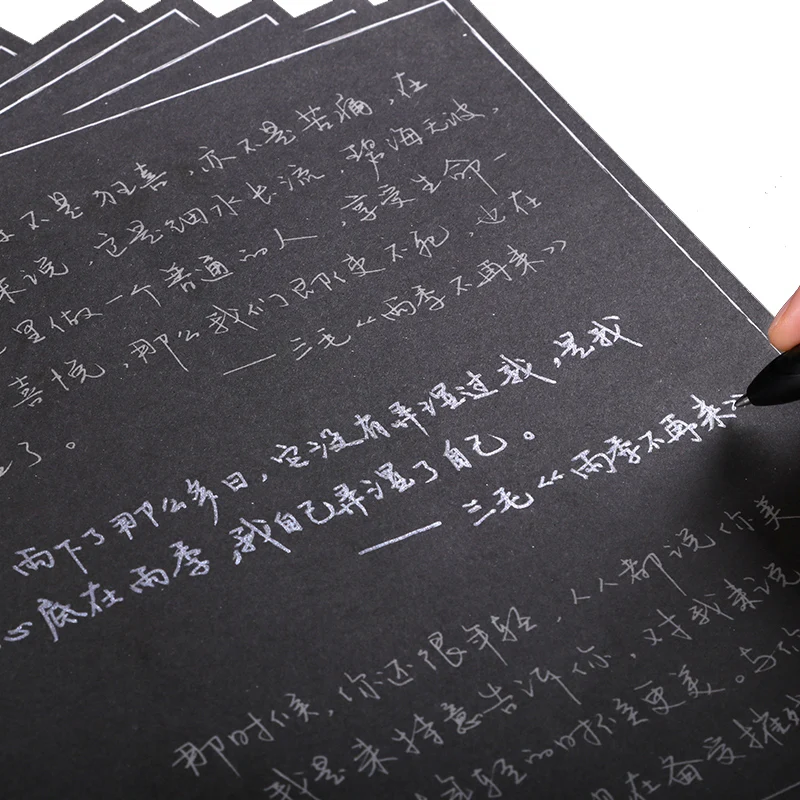 不是狂喜，亦不是苦痛，在
来说，它是细水长流，碧海无波，
里做一个普通的人，享受生命一
喜悦，那么我们即使不死，也在
了。
——三毛《雨季不再来》
雨下了那么多日，它没有弄湿过我，是我
心底在雨季，我自己弄湿了自己。
——三毛《雨季不再来
那时候，你还很年轻，人人都说你美
我是来特意告诉你，对我来说
年轻的时候更美。与你
在备受摧